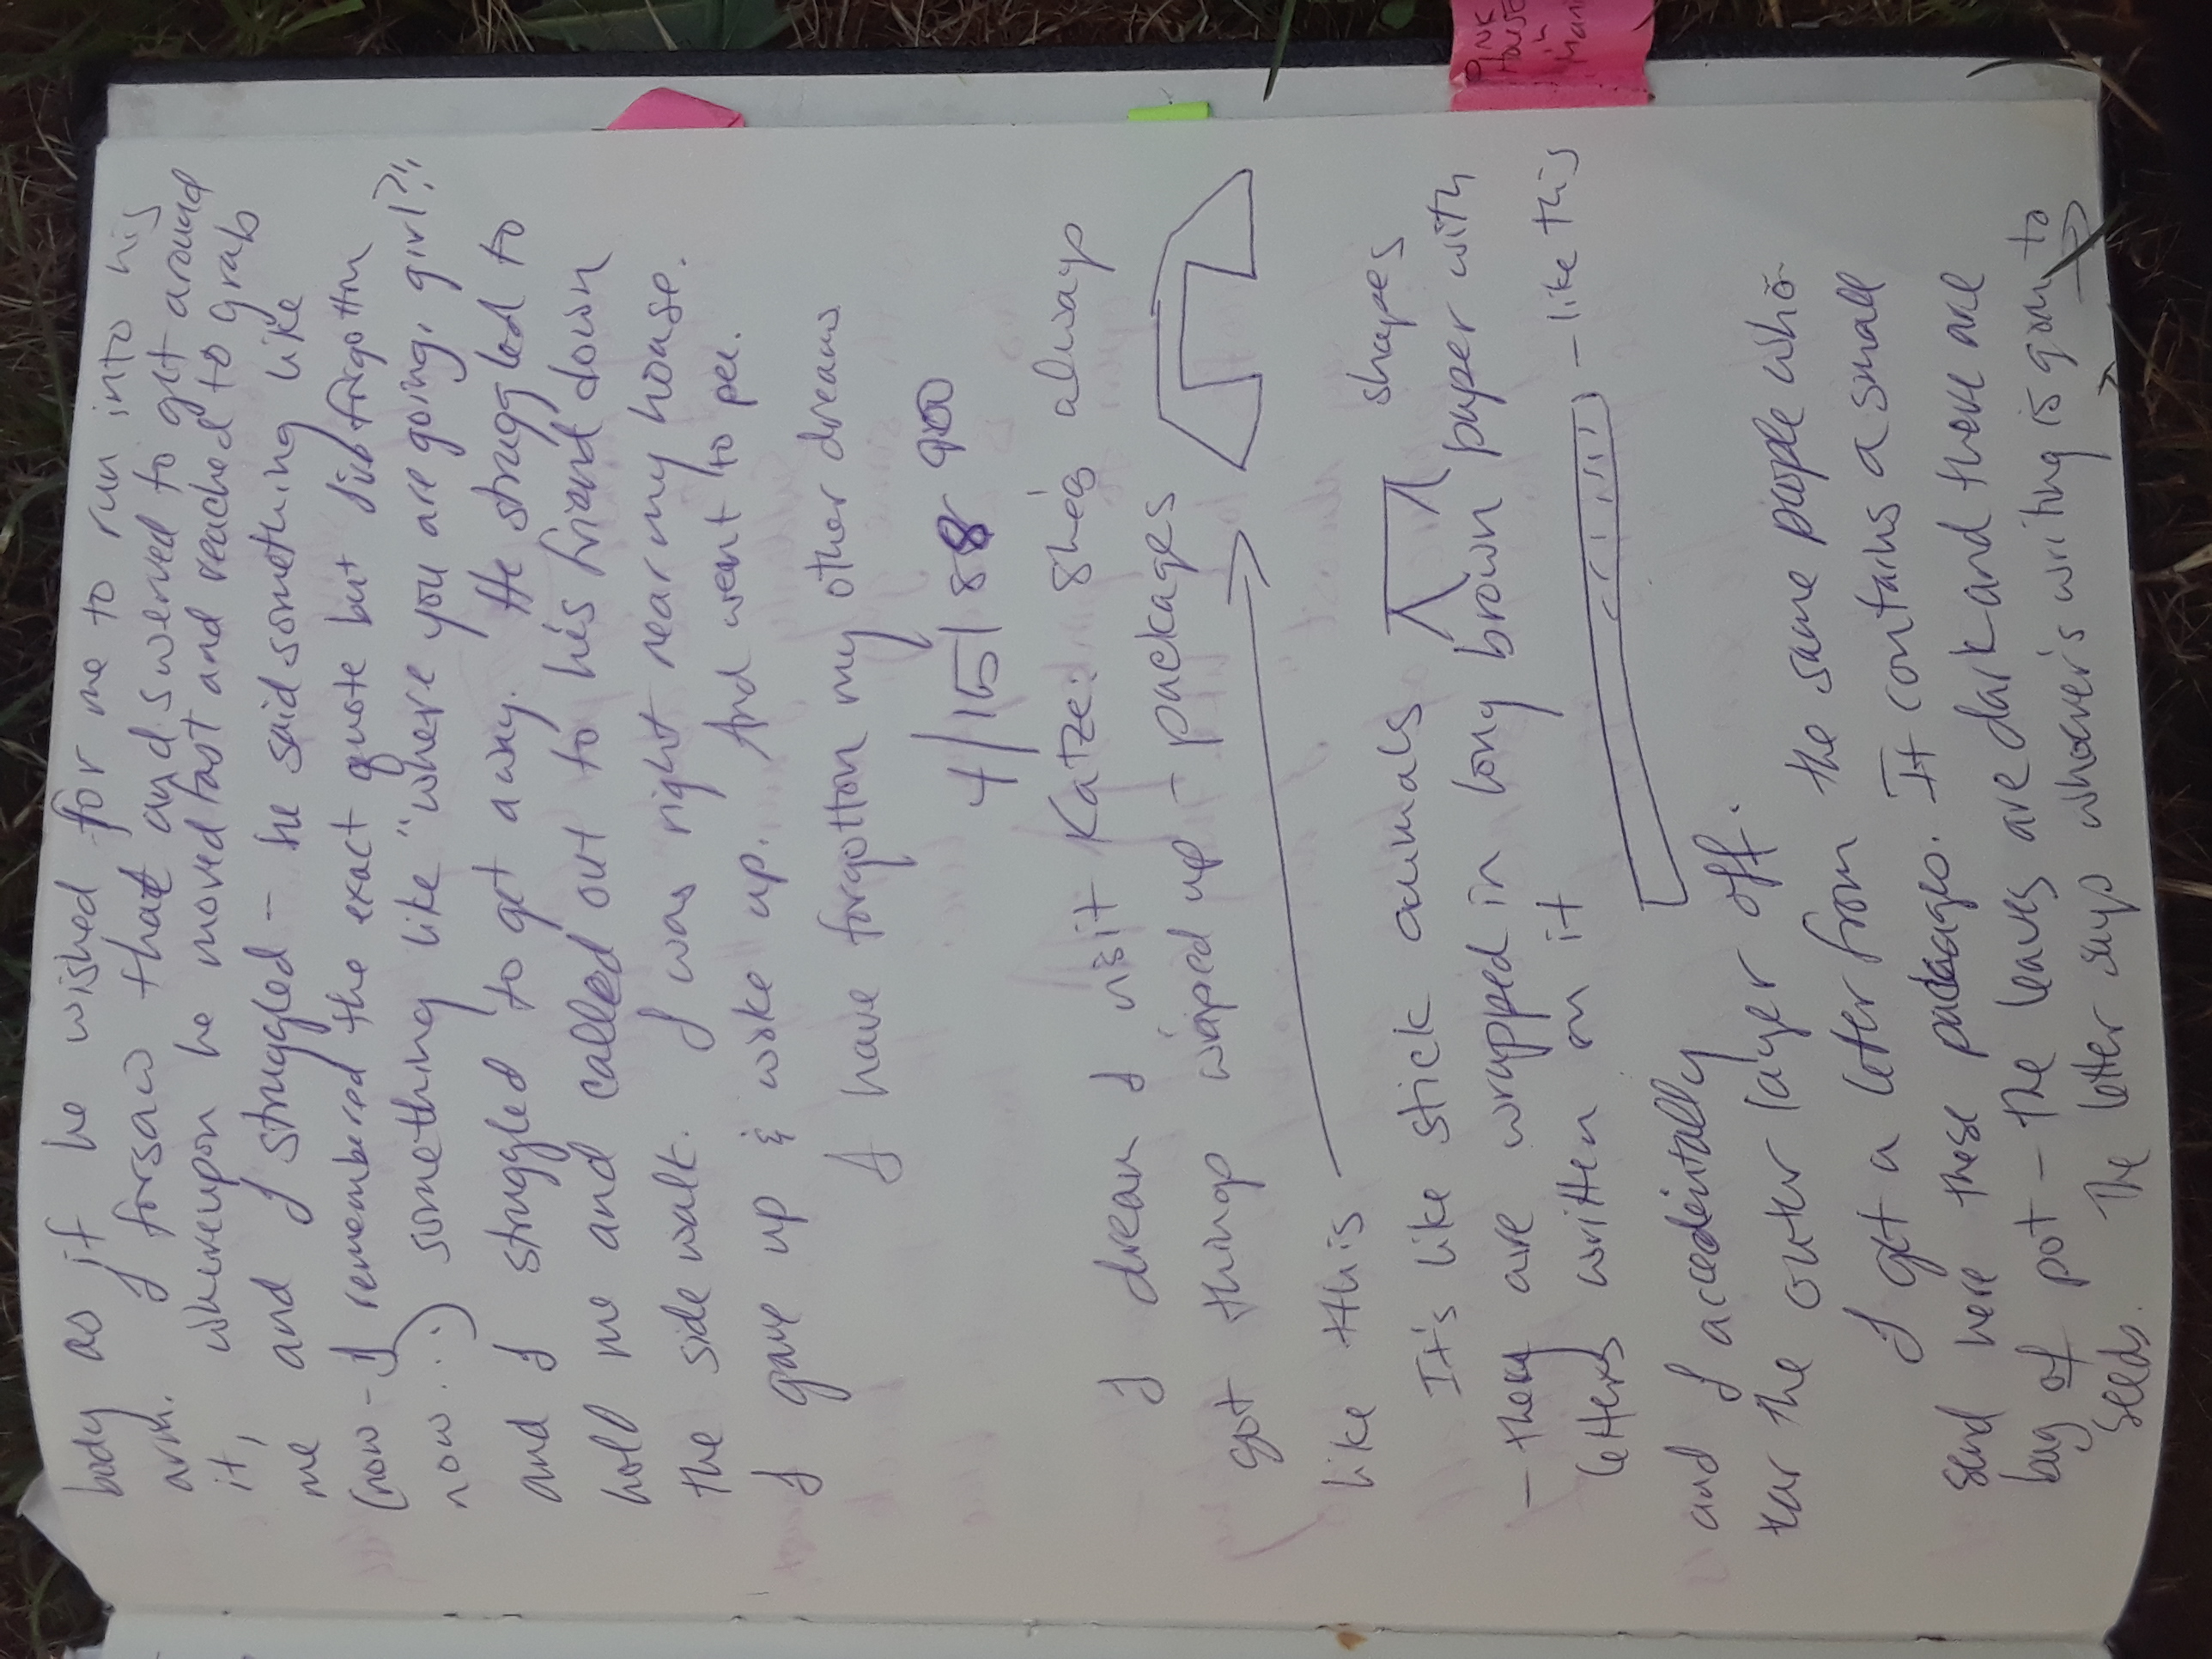 body as if he wished for me to run into his
arm. I forsaw that and swerved to get around
it, whereupon he moved fast and reached to grab
me and I struggled - he said something like
(now - I remembered the exact quote but
now...) something like "where you are going, girl?!,
and I struggled to get away. He struggled to
hold me and called out to his friend down
the side walk. I was right near my house.
I gave up & woke up. And went to pee.
I have forgotton my other dreams
4/15/88 900
I dream I visit Katze. She's always
got things wraped up - packages
like this
It's like stick animals shapes
- they are wrapped in long brown paper with
letters written on it - like this
and I accedintally
tear the outer layer off.
I get a letter from the same people who
send here these packages. It contains a small
bag of pot - the leaves are dark and there are
seeds. The letter says whoever's writing is going to
Pink
House
in